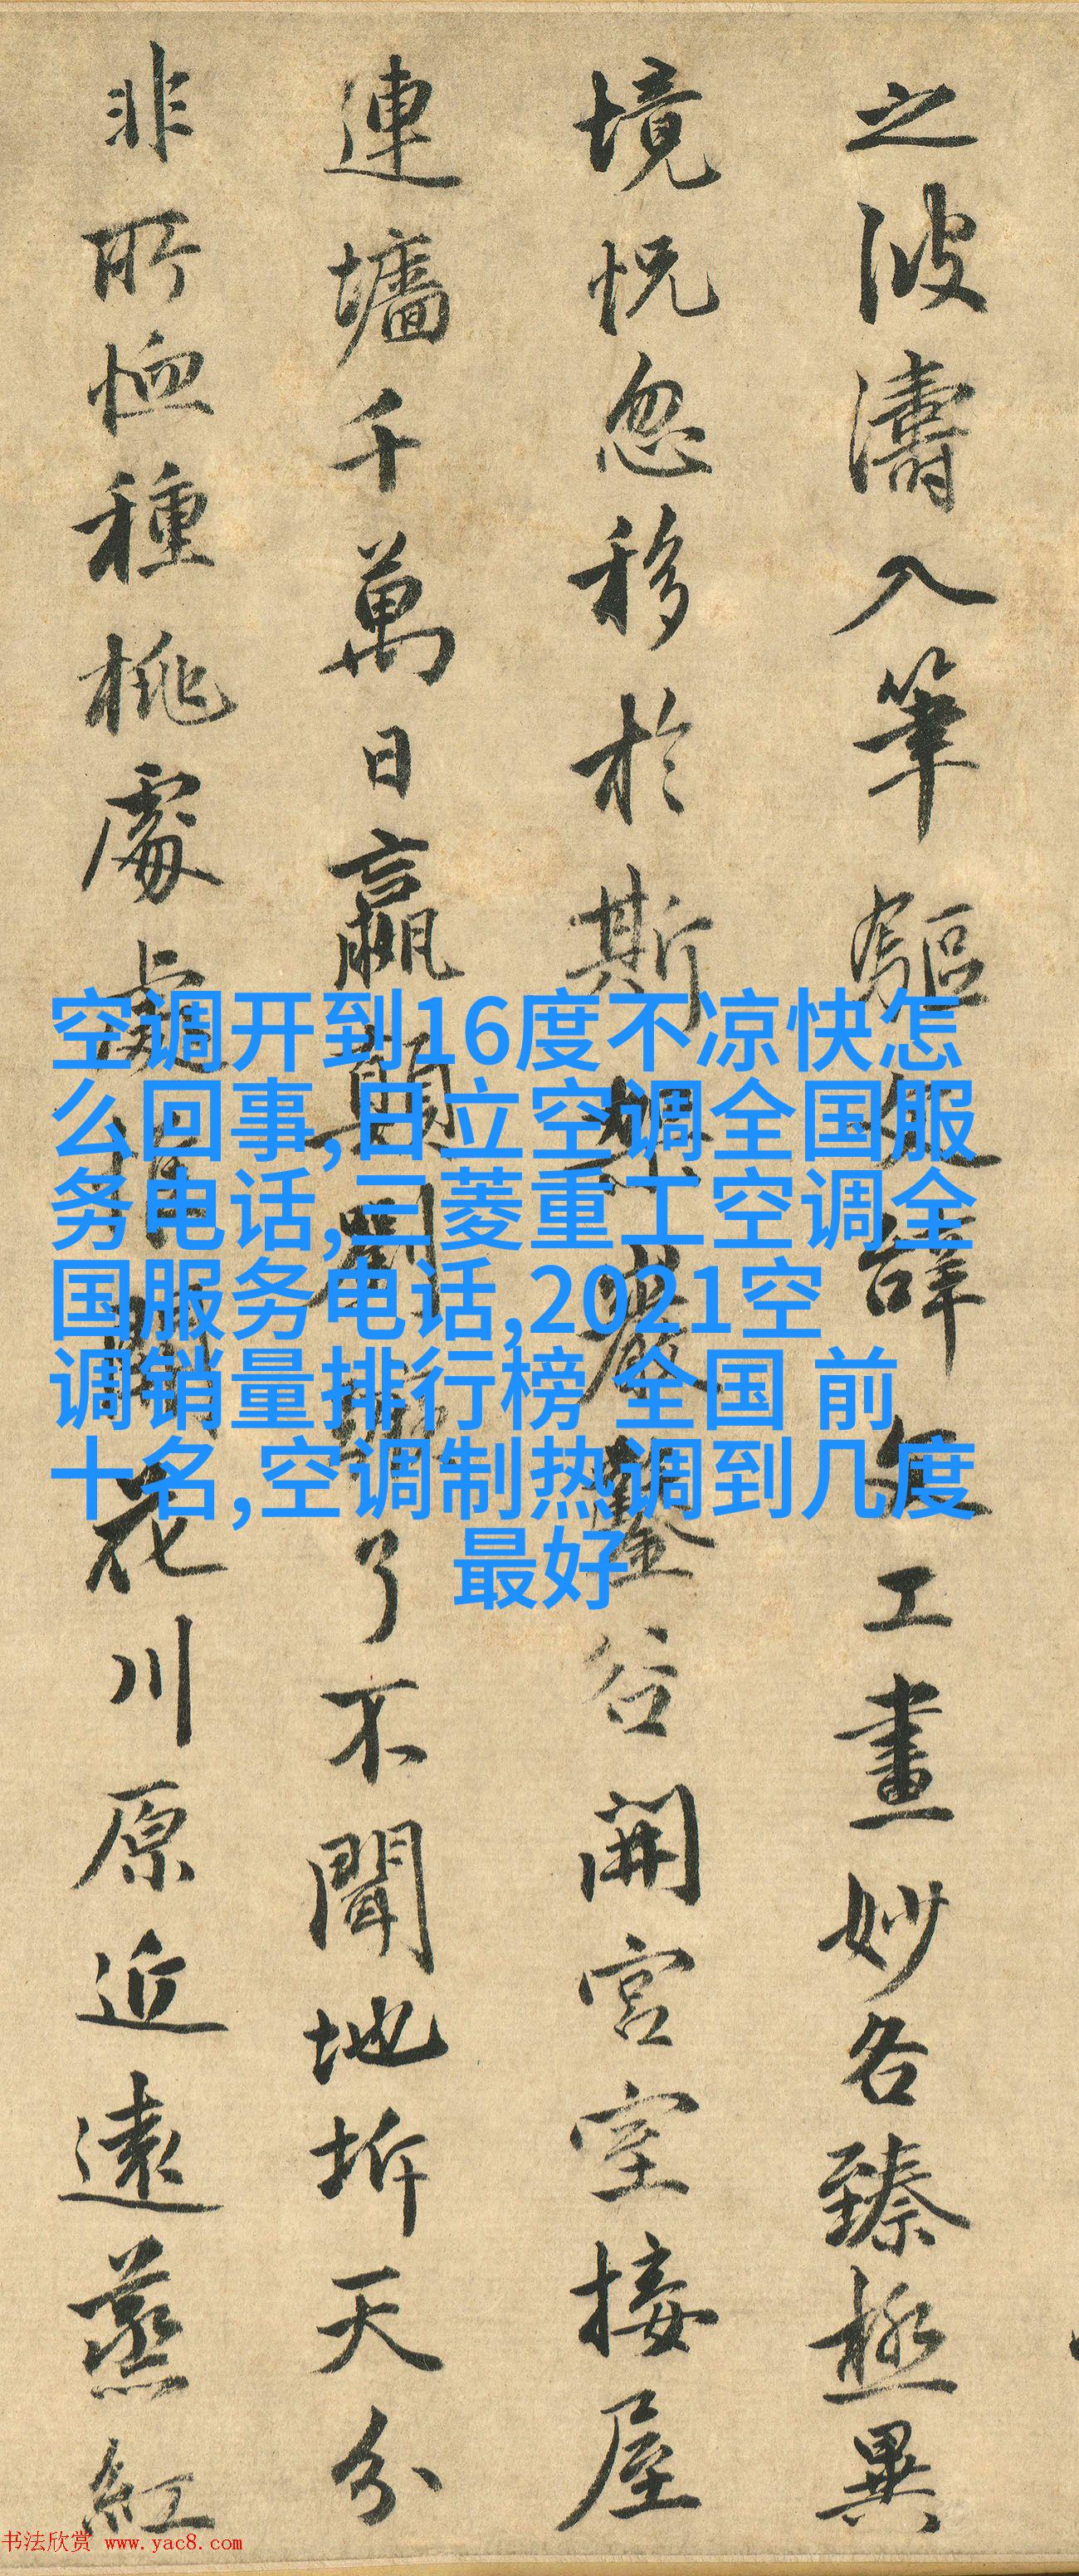 之波濤入筆驅文辭文工畫妙各臻極異
境怳忽移於斯架巖鑿谷開宮室接屋
連墻千萬日嬴顛劉了不聞地坼天分
非所恤種桃處處惟開花川原近遠蒸紅
空调开到16度不凉快怎
么回事,日立空调全国服
务电话,三菱重工空调全
国服务电话,2021空
调销量排行榜 全国 前
十名,空调制热调到几度
最好
书法欣赏 www.yac8.com